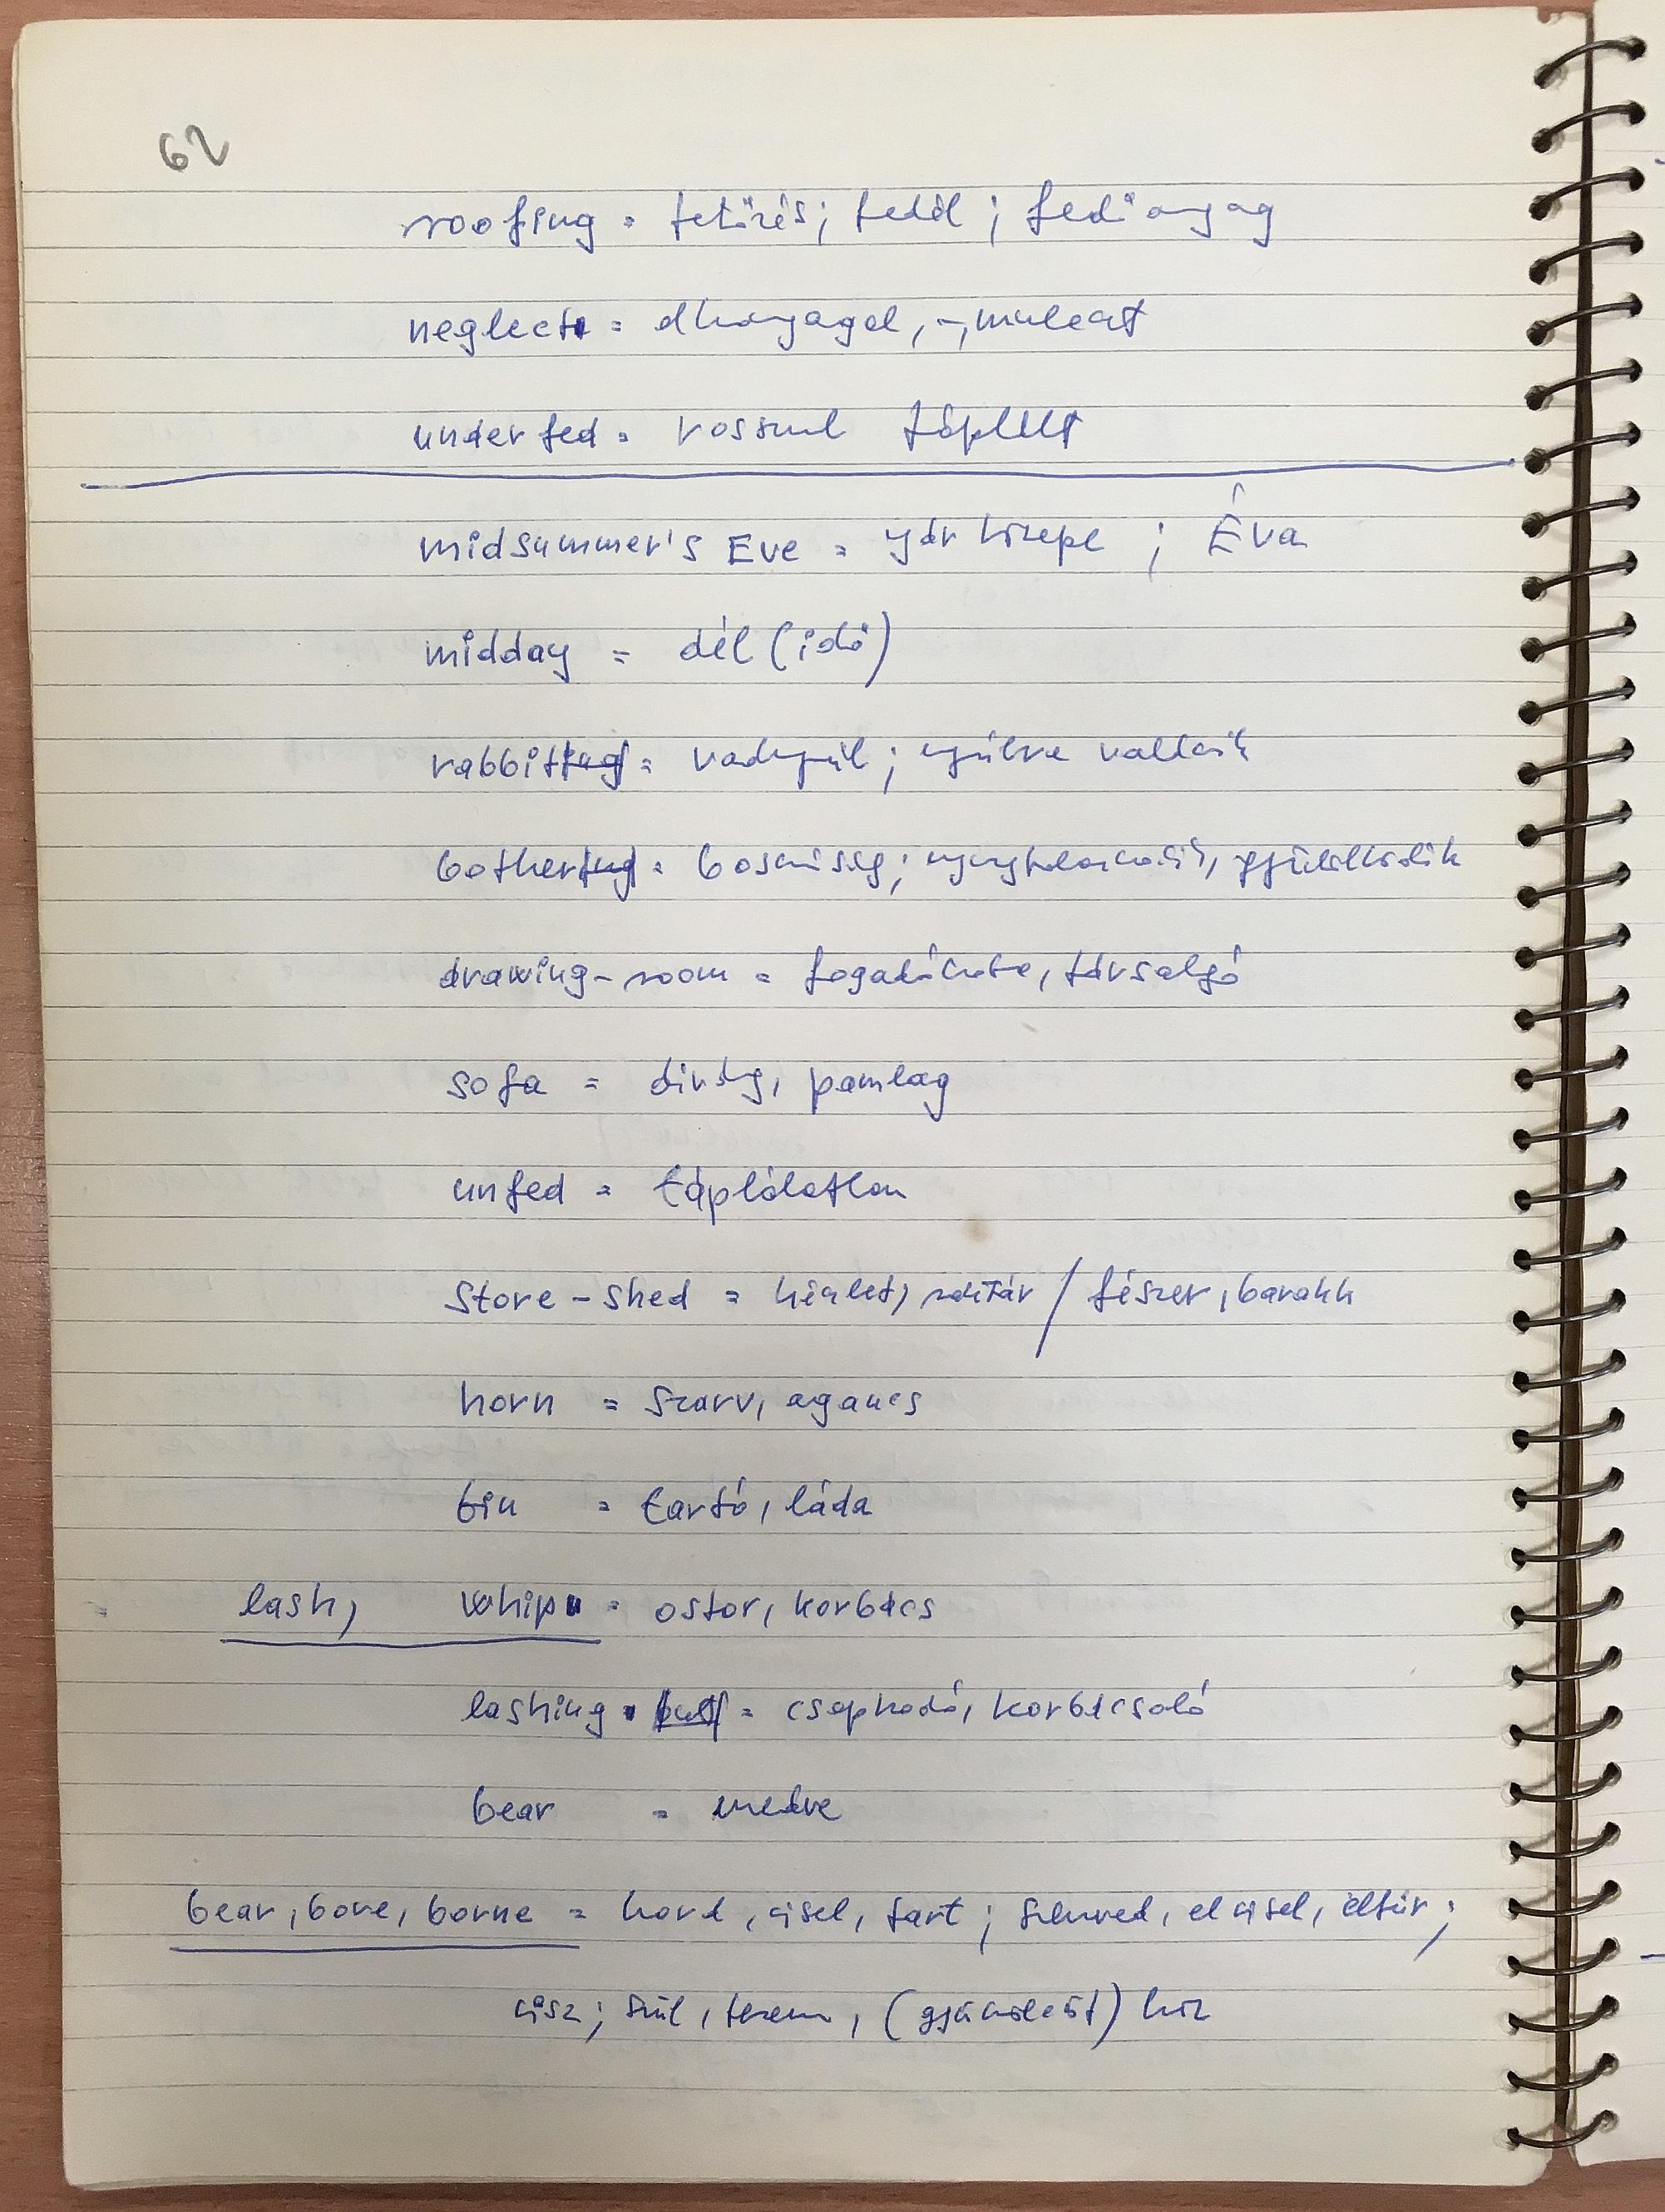 62
roofing = tetőzés; fedél; fedő anyag
neglect = elhanyagol, -, mulaszt
underfed = rosszul táplált
midsummer's Eve = nyár közepe ; Éva
midday = dél (idő)
rabbit = vadnyúl; nyúlra vadászik
bother = bosszúság; nyugtalankodik,
drawing-room = fogadószoba, társalgó
sofa = dívány, pamlag
unfed = táplálatlan
store-shed = készlet, raktár / fészer, barakk
horn = szarv, agancs
bin = tartó, láda
lash, whip = ostor, korbács
lashing = csapkodó, korbácsoló
bear = medve
bear, bore, borne = hord, visel, tart ; szenved, elvisel, eltűr ;
visz; szül, terem, (gyümölcsöt) hoz